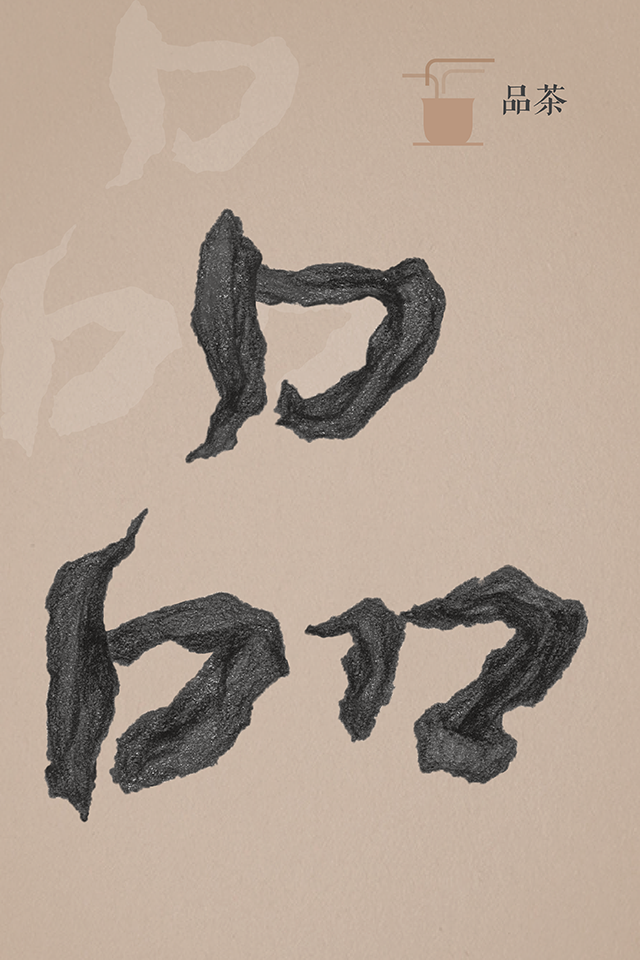 品茶
品